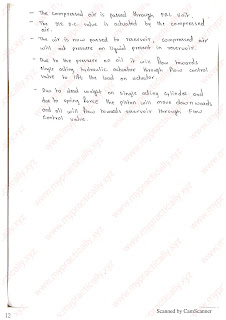 - The compressed air is passed through FRL Unit.
- The 3/2 D.C. valve is actuated by the compressed
air.
- The air is now passed to reservoir, compressed air
will act pressure on liquid present in reservoir.
- Due to the pressure on oil it will flow towards
single acting hydraulic actuator through flow control
valve to lift the load on actuator.
- Due to dead weight on single acting cylinder and
due to spring force the piston will move downwards
and oil will flow towards reservoir through Flow
Control valve.
12
Scanned by CamScanner